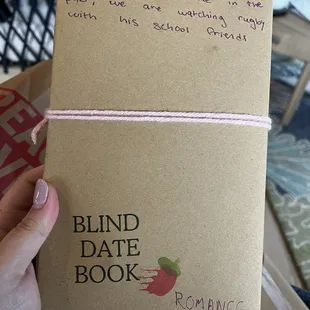 in the
we are watching rugby
with his school friends
BLIND
DATE
BOOK
ROMANCE